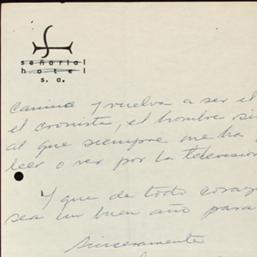 señorial
hotel
s. a.
camino y vuelva a ser el
el cronista, el hombre si
al que siempre me ha
leer o ver por la television
Y que de todo coraz
sea un buen año para
Sinceramente